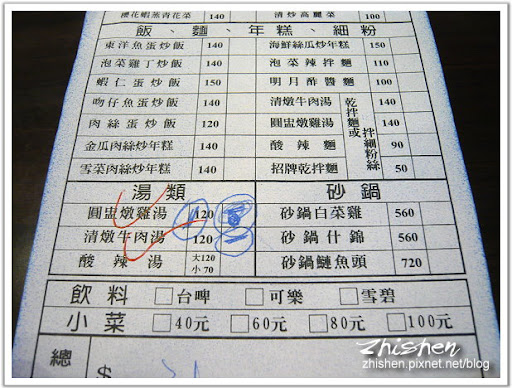 櫻花蝦蒸青花菜 140 清炒高麗菜 100
飯、麵、年糕、細粉
東洋魚蛋炒飯 140 海鮮絲瓜炒年糕 150
泡菜雞丁炒飯 140 泡菜辣拌麵 110
蝦仁蛋炒飯 150 明月酢醬麵 100
吻仔魚蛋炒飯 140 清燉牛肉湯 乾拌麵或拌細粉絲 140
肉絲蛋炒飯 120 圓盅燉雞湯 140
金瓜肉絲炒年糕 140 酸辣麵 90
雪菜肉絲炒年糕 140 招牌乾拌麵 50
湯類 砂鍋
圓盅燉雞湯 120 砂鍋白菜雞 560
清燉牛肉湯 120 砂鍋什錦 560
酸辣湯 大120 小70 砂鍋鰱魚頭 720
飲料 □台啤 □可樂 □雪碧
小菜 □40元 □60元 □80元 □100元
總 $
zhishen
zhishen.pixnet.net/blog